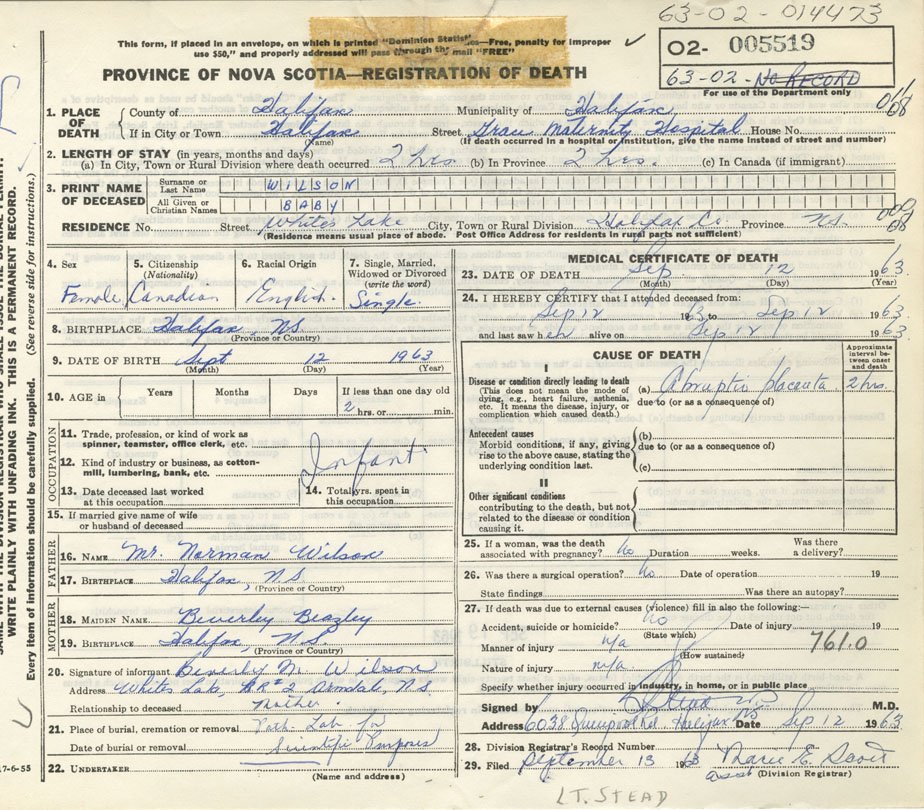 63-02-014473
This form, if placed in an envelope, on which is printed "Dominion Statistics—Free, penalty for improper
use $50," and properly addressed will pass through the mail "FREE"
02- 005519
63-02- NO RECORD
For use of the Department only
PROVINCE OF NOVA SCOTIA—REGISTRATION OF DEATH
1. PLACE OF DEATH County of Halifax Municipality of Halifax
If in City or Town Halifax Street Grace Maternity Hospital House No.
(Name) (If death occurred in a hospital or institution, give the name instead of street and number)
2. LENGTH OF STAY (in years, months and days)
(a) In City, Town or Rural Division where death occurred 2 hrs. (b) In Province 2 hrs. (c) In Canada (if immigrant)
3. PRINT NAME OF DECEASED Surname or Last Name WILSON
All Given or Christian Names BABY
RESIDENCE No. Street Whites Lake City, Town or Rural Division Halifax Co. Province N.S.
(Residence means usual place of abode. Post Office Address for residents in rural parts not sufficient)
4. Sex Female
5. Citizenship (Nationality) Canadian
6. Racial Origin English
7. Single, Married, Widowed or Divorced (write the word) Single
8. BIRTHPLACE Halifax, N.S.
(Province or Country)
9. DATE OF BIRTH Sept 12 1963
(Month) (Day) (Year)
10. AGE in Years Months Days If less than one day old
2 hrs. or min.
OCCUPATION
11. Trade, profession, or kind of work as
spinner, teamster, office clerk, etc.
12. Kind of industry or business, as cotton-
mill, lumbering, bank, etc.
Infant
13. Date deceased last worked
at this occupation
14. Total yrs. spent in
this occupation
15. If married give name of wife
or husband of deceased
FATHER
16. NAME Mr. Norman Wilson
17. BIRTHPLACE Halifax, N.S.
(Province or Country)
MOTHER
18. MAIDEN NAME Beverley Beazley
19. BIRTHPLACE Halifax, N.S.
(Province or Country)
20. Signature of informant Beverly M. Wilson
Address Whites Lake, RR#2 Armdale, N.S.
Relationship to deceased Mother
21. Place of burial, cremation or removal Path. Lab for
Date of burial or removal Scientific Purposes
22. UNDERTAKER
(Name and address)
MEDICAL CERTIFICATE OF DEATH
23. DATE OF DEATH Sep 12 1963
(Month) (Day) (Year)
24. I HEREBY CERTIFY that I attended deceased from:
Sep 12 1963 to Sep 12 1963
and last saw her alive on Sep 12 1963
CAUSE OF DEATH
Approximate interval between onset and death
I
Disease or condition directly leading to death
(This does not mean the mode of
dying, e.g., heart failure, asthenia,
etc. It means the disease, injury, or
complication which caused death.)
(a) Abruptio placenta 2 hrs.
due to (or as a consequence of)
Antecedent causes
Morbid conditions, if any, giving
rise to the above cause, stating the
underlying condition last.
(b)
due to (or as a consequence of)
(c)
II
Other significant conditions
contributing to the death, but not
related to the disease or condition
causing it.
25. If a woman, was the death
associated with pregnancy? No Duration weeks. Was there
a delivery?
26. Was there a surgical operation? No Date of operation 19
State findings Was there an autopsy?
27. If death was due to external causes (violence) fill in also the following:—
Accident, suicide or homicide? No Date of injury 19
(State which)
Manner of injury n/a 761.0
(How sustained)
Nature of injury n/a
Specify whether injury occurred in industry, in home, or in public place
Signed by M.D.
Address 6038 Halifax NS Date Sep 12 1963
28. Division Registrar's Record Number
29. Filed September 13 1963 Marie E. Scott
Asst (Division Registrar)
LT. STEAD
WRITE PLAINLY WITH UNFADING INK. THIS IS A PERMANENT RECORD.
Every item of information should be carefully supplied. (See reverse side for instructions.)
17-6-55